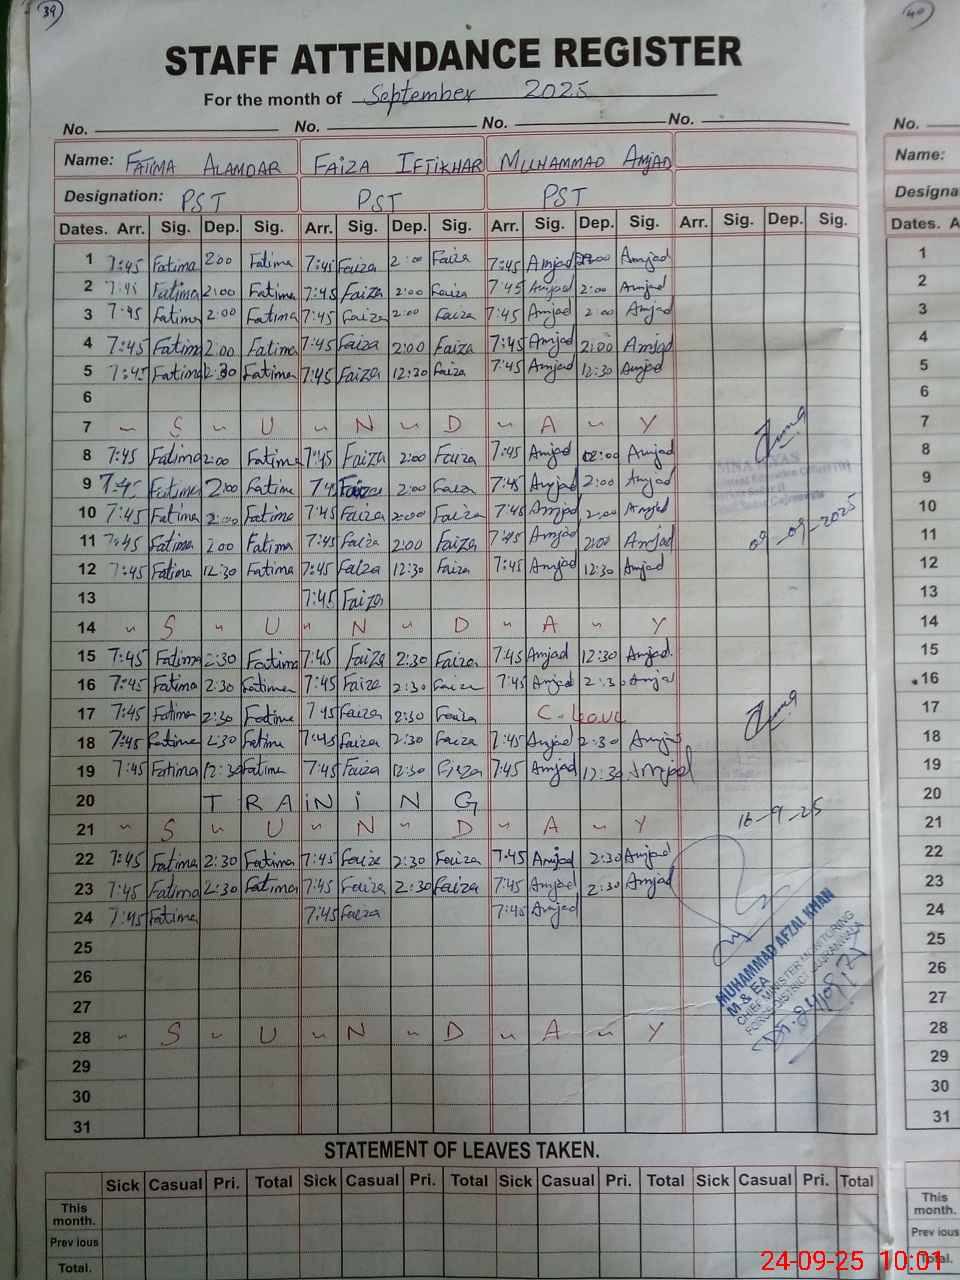 39
40
STAFF ATTENDANCE REGISTER
For the month of September 2025
No. No. No. No. No.
Name: FATIMA ALAMDAR FAIZA IFTIKHAR MUHAMMAD AMJAD Name:
Designation: PST PST PST Designa
Dates. Arr. Sig. Dep. Sig. Arr. Sig. Dep. Sig. Arr. Sig. Dep. Sig. Arr. Sig. Dep. Sig. Dates. A
1 7:45 Fatima 2:00 Fatima 7:45 Faiza 2:00 Faiza 7:45 Amjad Amjad 1
2 7:45 Fatima 2:00 Fatima 7:45 Faiza 2:00 Faiza 7:45 Amjad 2:00 Amjad 2
3 7:45 Fatima 2:00 Fatima 7:45 Faiza 2:00 Faiza 7:45 Amjad 2:00 Amjad 3
4 7:45 Fatima 2:00 Fatima 7:45 Faiza 2:00 Faiza 7:45 Amjad 2:00 Amjad 4
5 7:45 Fatima 12:30 Fatima 7:45 Faiza 12:30 Faiza 7:45 Amjad 12:30 Amjad 5
6 6
7 " S " U " N " D " A " Y 7
8 7:45 Fatima 2:00 Fatima 7:45 Faiza 2:00 Faiza 7:45 Amjad 02:00 Amjad 8
9 7:45 Fatima 2:00 Fatima 7:45 Faiza 2:00 Faiza 7:45 Amjad 2:00 Amjad 9
10 7:45 Fatima 2:00 Fatima 7:45 Faiza 2:00 Faiza 7:45 Amjad 2:00 Amjad 10
11 7:45 Fatima 2:00 Fatima 7:45 Faiza 2:00 Faiza 7:45 Amjad 2:00 Amjad 09-09-2025 11
12 7:45 Fatima 12:30 Fatima 7:45 Faiza 12:30 Faiza 7:45 Amjad 12:30 Amjad 12
13 7:45 Faiza 13
14 " S " U " N " D " A " Y 14
15 7:45 Fatima 2:30 Fatima 7:45 Faiza 2:30 Faiza 7:45 Amjad 12:30 Amjad 15
16 7:45 Fatima 2:30 Fatima 7:45 Faiza 2:30 Faiza 7:45 Amjad 2:30 Amjad 16
17 7:45 Fatima 2:30 Fatima 7:45 Faiza 2:30 Faiza C. Leave 17
18 7:45 Fatima 2:30 Fatima 7:45 Faiza 2:30 Faiza 7:45 Amjad 2:30 Amjad 18
19 7:45 Fatima 12:30 Fatima 7:45 Faiza 12:30 Faiza 7:45 Amjad 12:30 Amjad 19
20 TRAINING 20
21 " S " U " N " D " A " Y 16-9-25 21
22 7:45 Fatima 2:30 Fatima 7:45 Faiza 2:30 Faiza 7:45 Amjad 2:30 Amjad 22
23 7:45 Fatima 2:30 Fatima 7:45 Faiza 2:30 Faiza 7:45 Amjad 2:30 Amjad 23
24 7:45 Fatima 7:45 Faiza 7:45 Amjad 24
25 25
26 26
27 27
28 " S " U " N " D " A " Y 28
29 29
30 30
31 31
MUHAMMAD AFZAL KHAN
M & EA
CHIEF MINISTER MONITORING
FORCE DISTRICT GUJRANWALA
STATEMENT OF LEAVES TAKEN.
Sick Casual Pri. Total Sick Casual Pri. Total Sick Casual Pri. Total Sick Casual Pri. Total
This month. This month.
Previous Previous
Total. Total.
24-09-25 10:01